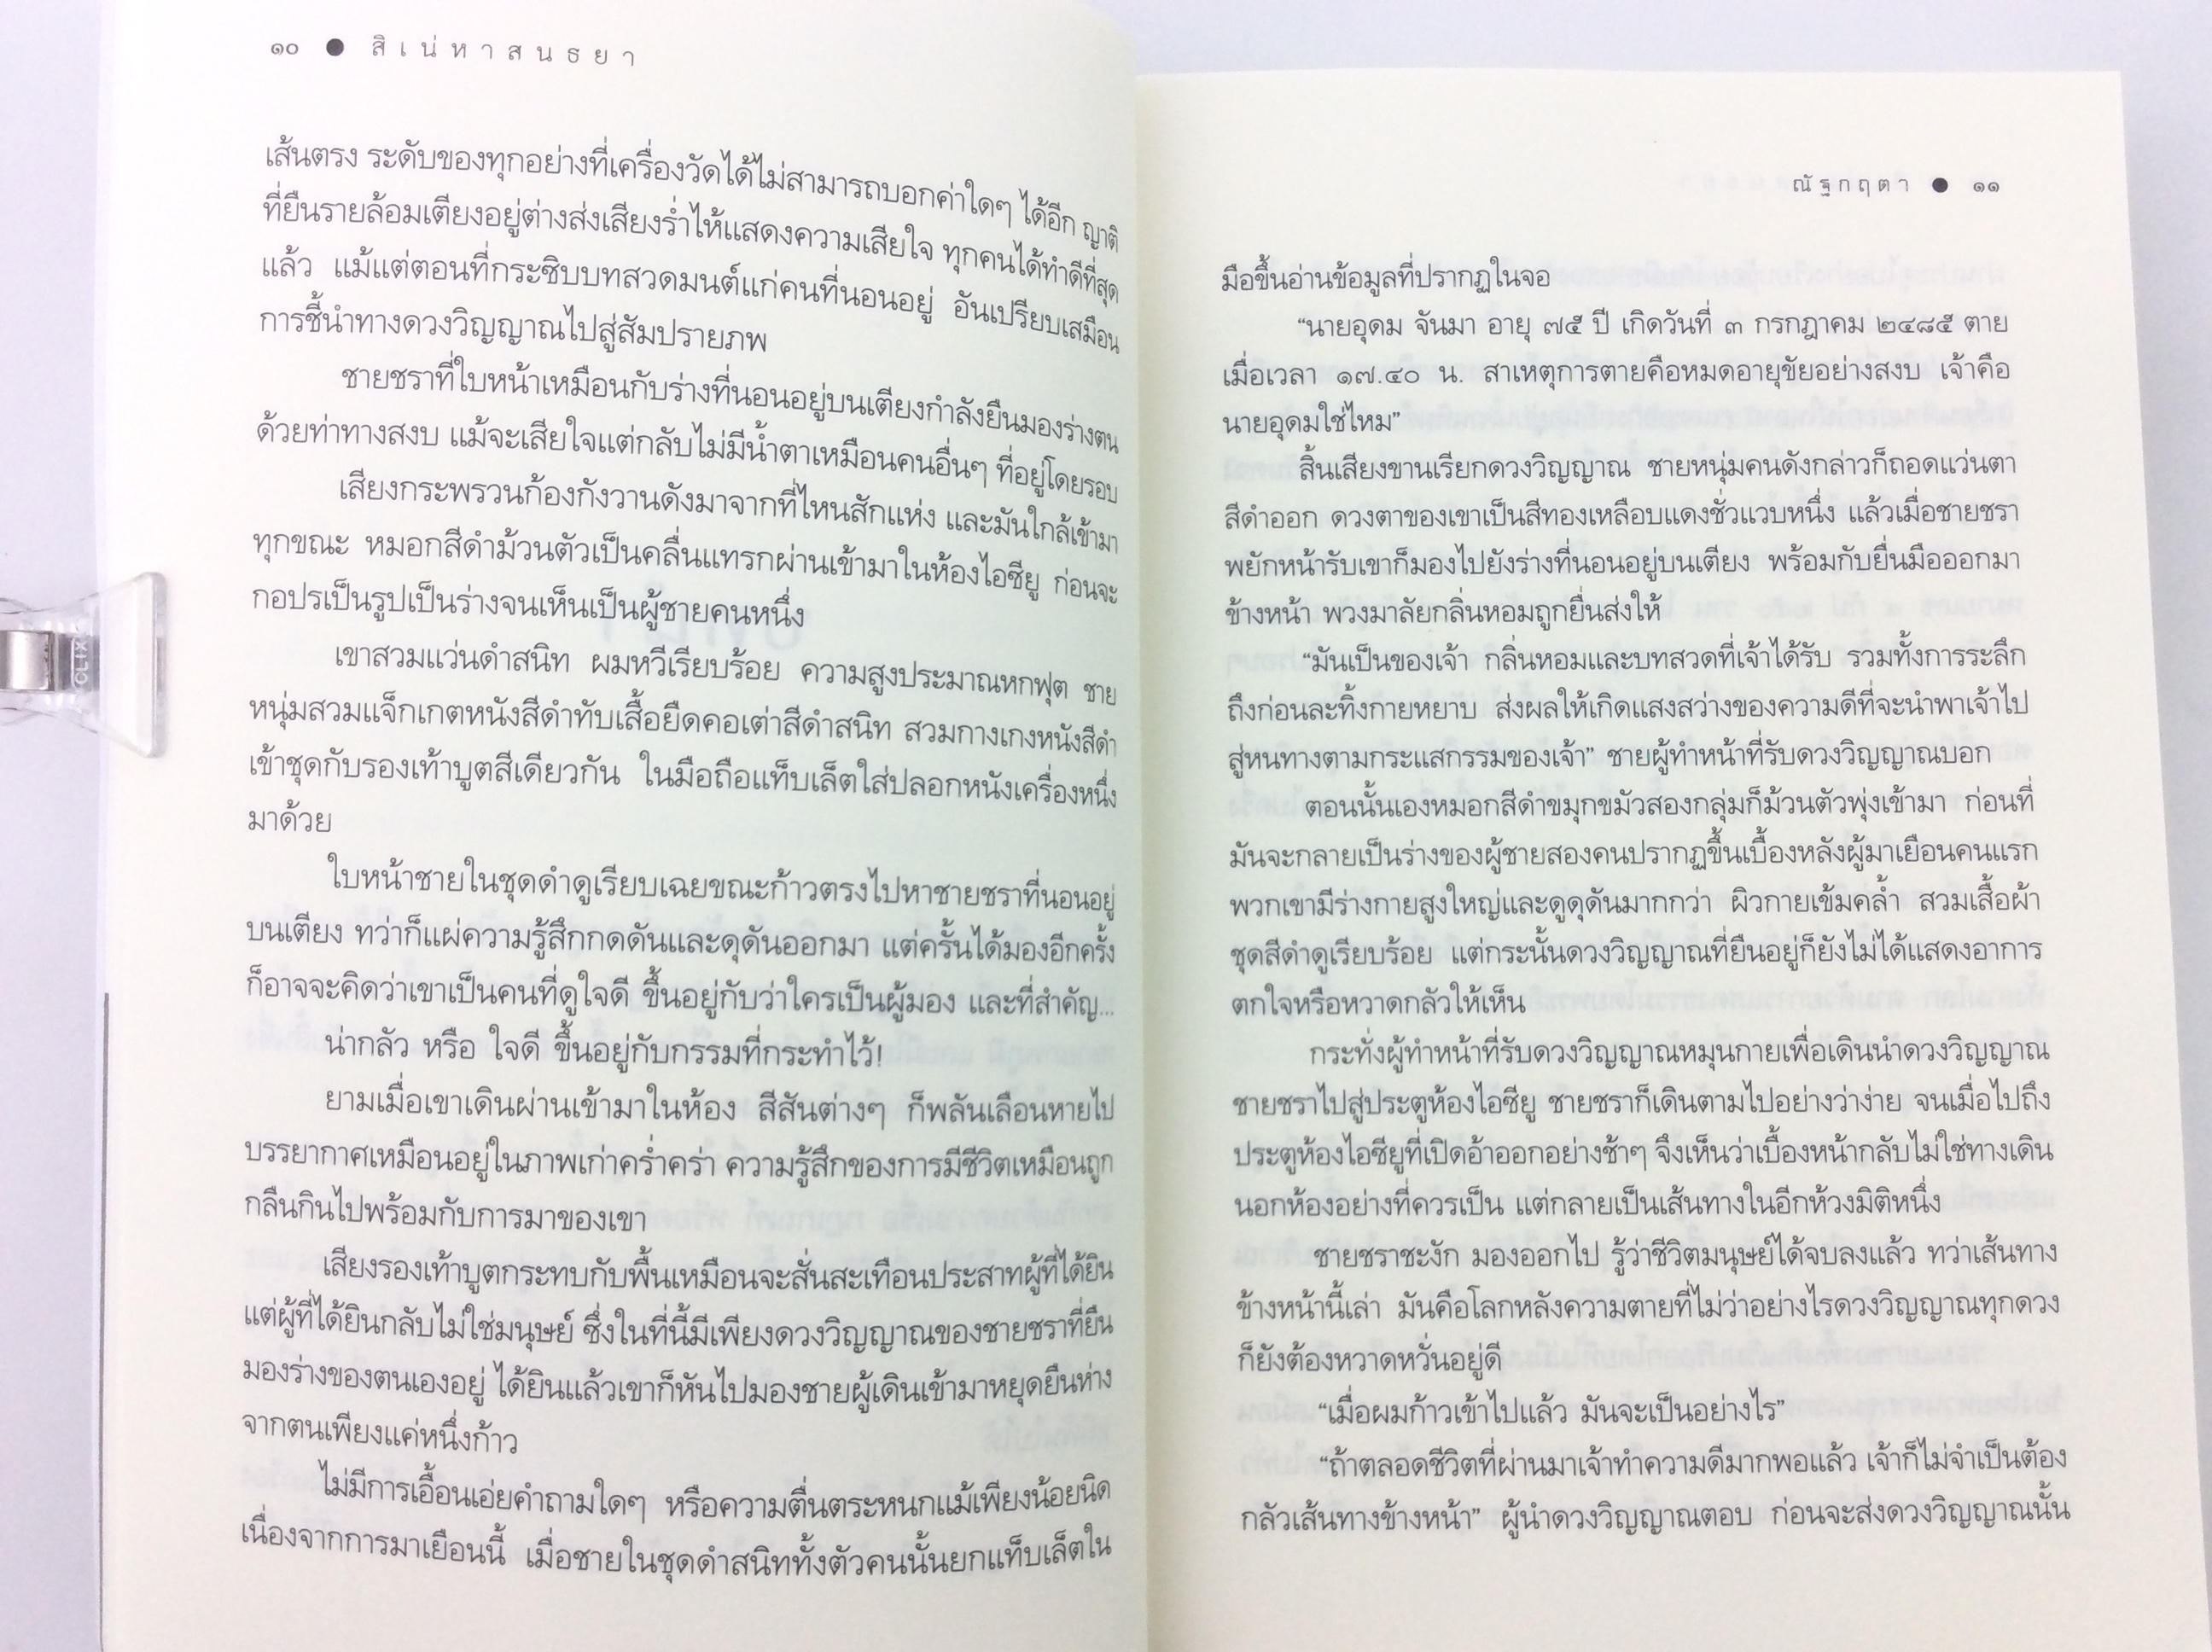 ๑๐ ● สิเน่หาสนธยา
เส้นตรง ระดับของทุกอย่างที่เครื่องวัดได้ไม่สามารถบอกค่าใดๆ ได้อีก ญาติ
ที่ยืนรายล้อมเตียงอยู่ต่างส่งเสียงร่ำไห้แสดงความเสียใจ ทุกคนได้ทำดีที่สุด
แล้ว แม้แต่ตอนที่กระซิบบทสวดมนต์แก่คนที่นอนอยู่ อันเปรียบเสมือน
การชี้นำทางดวงวิญญาณไปสู่สัมปรายภพ
ชายชราที่ใบหน้าเหมือนกับร่างที่นอนอยู่บนเตียงกำลังยืนมองร่างตน
ด้วยท่าทางสงบ แม้จะเสียใจแต่กลับไม่มีน้ำตาเหมือนคนอื่นๆ ที่อยู่โดยรอบ
เสียงกระพรวนก้องกังวานดังมาจากที่ไหนสักแห่ง และมันใกล้เข้ามา
ทุกขณะ หมอกสีดำม้วนตัวเป็นคลื่นแทรกผ่านเข้ามาในห้องไอซียู ก่อนจะ
กอปรเป็นรูปเป็นร่างจนเห็นเป็นผู้ชายคนหนึ่ง
เขาสวมแว่นดำสนิท ผมหวีเรียบร้อย ความสูงประมาณหกฟุต ชาย
หนุ่มสวมแจ็กเกตหนังสีดำทับเสื้อยืดคอเต่าสีดำสนิท สวมกางเกงหนังสีดำ
เข้าชุดกับรองเท้าบูตสีเดียวกัน ในมือถือแท็บเล็ตใส่ปลอกหนังเครื่องหนึ่ง
มาด้วย
ใบหน้าชายในชุดดำดูเรียบเฉยขณะก้าวตรงไปหาชายชราที่นอนอยู่
บนเตียง ทว่าก็แผ่ความรู้สึกกดดันและดุดันออกมา แต่ครั้นได้มองอีกครั้ง
ก็อาจจะคิดว่าเขาเป็นคนที่ดูใจดี ขึ้นอยู่กับว่าใครเป็นผู้มอง และที่สำคัญ...
น่ากลัว หรือ ใจดี ขึ้นอยู่กับกรรมที่กระทำไว้!
ยามเมื่อเขาเดินผ่านเข้ามาในห้อง สีสันต่างๆ ก็พลันเลือนหายไป
บรรยากาศเหมือนอยู่ในภาพเก่าคร่ำคร่า ความรู้สึกของการมีชีวิตเหมือนถูก
กลืนกินไปพร้อมกับการมาของเขา
เสียงรองเท้าบูตกระทบกับพื้นเหมือนจะสั่นสะเทือนประสาทผู้ที่ได้ยิน
แต่ผู้ที่ได้ยินกลับไม่ใช่มนุษย์ ซึ่งในที่นี้มีเพียงดวงวิญญาณของชายชราที่ยืน
มองร่างของตนเองอยู่ ได้ยินแล้วเขาก็หันไปมองชายผู้เดินเข้ามาหยุดยืนห่าง
จากตนเพียงแค่หนึ่งก้าว
ไม่มีการเอื้อนเอ่ยคำถามใดๆ หรือความตื่นตระหนกแม้เพียงน้อยนิด
เนื่องจากการมาเยือนนี้ เมื่อชายในชุดดำสนิททั้งตัวคนนั้นยกแท็บเล็ตใน
ณัฐกฤตา ● ๑๑
มือขึ้นอ่านข้อมูลที่ปรากฏในจอ
“นายอุดม จันมา อายุ ๗๕ ปี เกิดวันที่ ๓ กรกฎาคม ๒๔๘๕ ตาย
เมื่อเวลา ๑๗.๔๐ น. สาเหตุการตายคือหมดอายุขัยอย่างสงบ เจ้าคือ
นายอุดมใช่ไหม”
สิ้นเสียงขานเรียกดวงวิญญาณ ชายหนุ่มคนดังกล่าวก็ถอดแว่นตา
สีดำออก ดวงตาของเขาเป็นสีทองเหลือบแดงชั่วแวบหนึ่ง แล้วเมื่อชายชรา
พยักหน้ารับเขาก็มองไปยังร่างที่นอนอยู่บนเตียง พร้อมกับยื่นมือออกมา
ข้างหน้า พวงมาลัยกลิ่นหอมถูกยื่นส่งให้
“มันเป็นของเจ้า กลิ่นหอมและบทสวดที่เจ้าได้รับ รวมทั้งการระลึก
ถึงก่อนละทิ้งกายหยาบ ส่งผลให้เกิดแสงสว่างของความดีที่จะนำพาเจ้าไป
สู่หนทางตามกระแสกรรมของเจ้า” ชายผู้ทำหน้าที่รับดวงวิญญาณบอก
ตอนนั้นเองหมอกสีดำขมุกขมัวสองกลุ่มก็ม้วนตัวพุ่งเข้ามา ก่อนที่
มันจะกลายเป็นร่างของผู้ชายสองคนปรากฏขึ้นเบื้องหลังผู้มาเยือนคนแรก
พวกเขามีร่างกายสูงใหญ่และดูดุดันมากกว่า ผิวกายเข้มคล้ำ สวมเสื้อผ้า
ชุดสีดำดูเรียบร้อย แต่กระนั้นดวงวิญญาณที่ยืนอยู่ก็ยังไม่ได้แสดงอาการ
ตกใจหรือหวาดกลัวให้เห็น
กระทั่งผู้ทำหน้าที่รับดวงวิญญาณหมุนกายเพื่อเดินนำดวงวิญญาณ
ชายชราไปสู่ประตูห้องไอซียู ชายชราก็เดินตามไปอย่างว่าง่าย จนเมื่อไปถึง
ประตูห้องไอซียูที่เปิดอ้าออกอย่างช้าๆ จึงเห็นว่าเบื้องหน้ากลับไม่ใช่ทางเดิน
นอกห้องอย่างที่ควรเป็น แต่กลายเป็นเส้นทางในอีกห้วงมิติหนึ่ง
ชายชราชะงัก มองออกไป รู้ว่าชีวิตมนุษย์ได้จบลงแล้ว ทว่าเส้นทาง
ข้างหน้านี้เล่า มันคือโลกหลังความตายที่ไม่ว่าอย่างไรดวงวิญญาณทุกดวง
ก็ยังต้องหวาดหวั่นอยู่ดี
“เมื่อผมก้าวเข้าไปแล้ว มันจะเป็นอย่างไร”
“ถ้าตลอดชีวิตที่ผ่านมาเจ้าทำความดีมากพอแล้ว เจ้าก็ไม่จำเป็นต้อง
กลัวเส้นทางข้างหน้า” ผู้นำดวงวิญญาณตอบ ก่อนจะส่งดวงวิญญาณนั้น